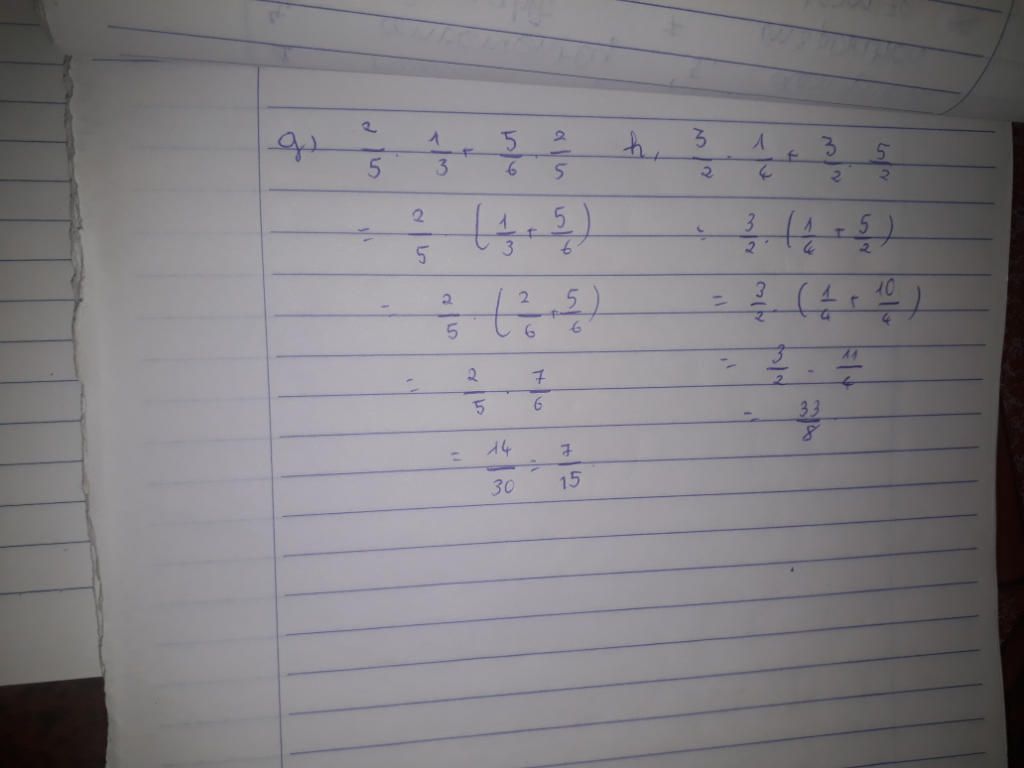 g) 2/5 . 1/3 + 5/6 . 2/5
= 2/5 . (1/3 + 5/6)
= 2/5 . (2/6 + 5/6)
= 2/5 . 7/6
= 14/30 = 7/15
h, 3/2 . 1/4 + 3/2 . 5/2
= 3/2 . (1/4 + 5/2)
= 3/2 . (1/4 + 10/4)
= 3/2 . 11/4
= 33/8